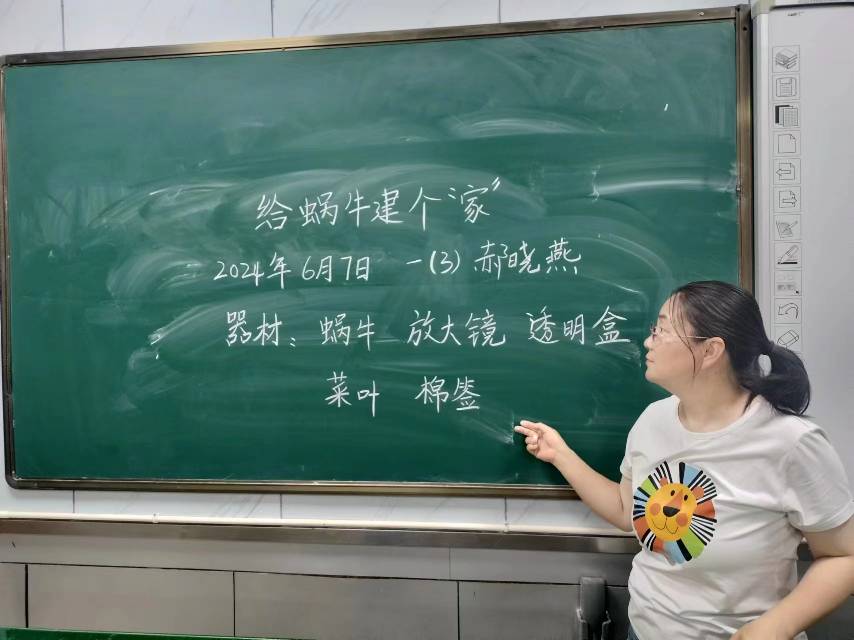 给蜗牛建个“家”
2024年6月7日 一(3) 郝晓燕
器材：蜗牛 放大镜 透明盒
菜叶 棉签